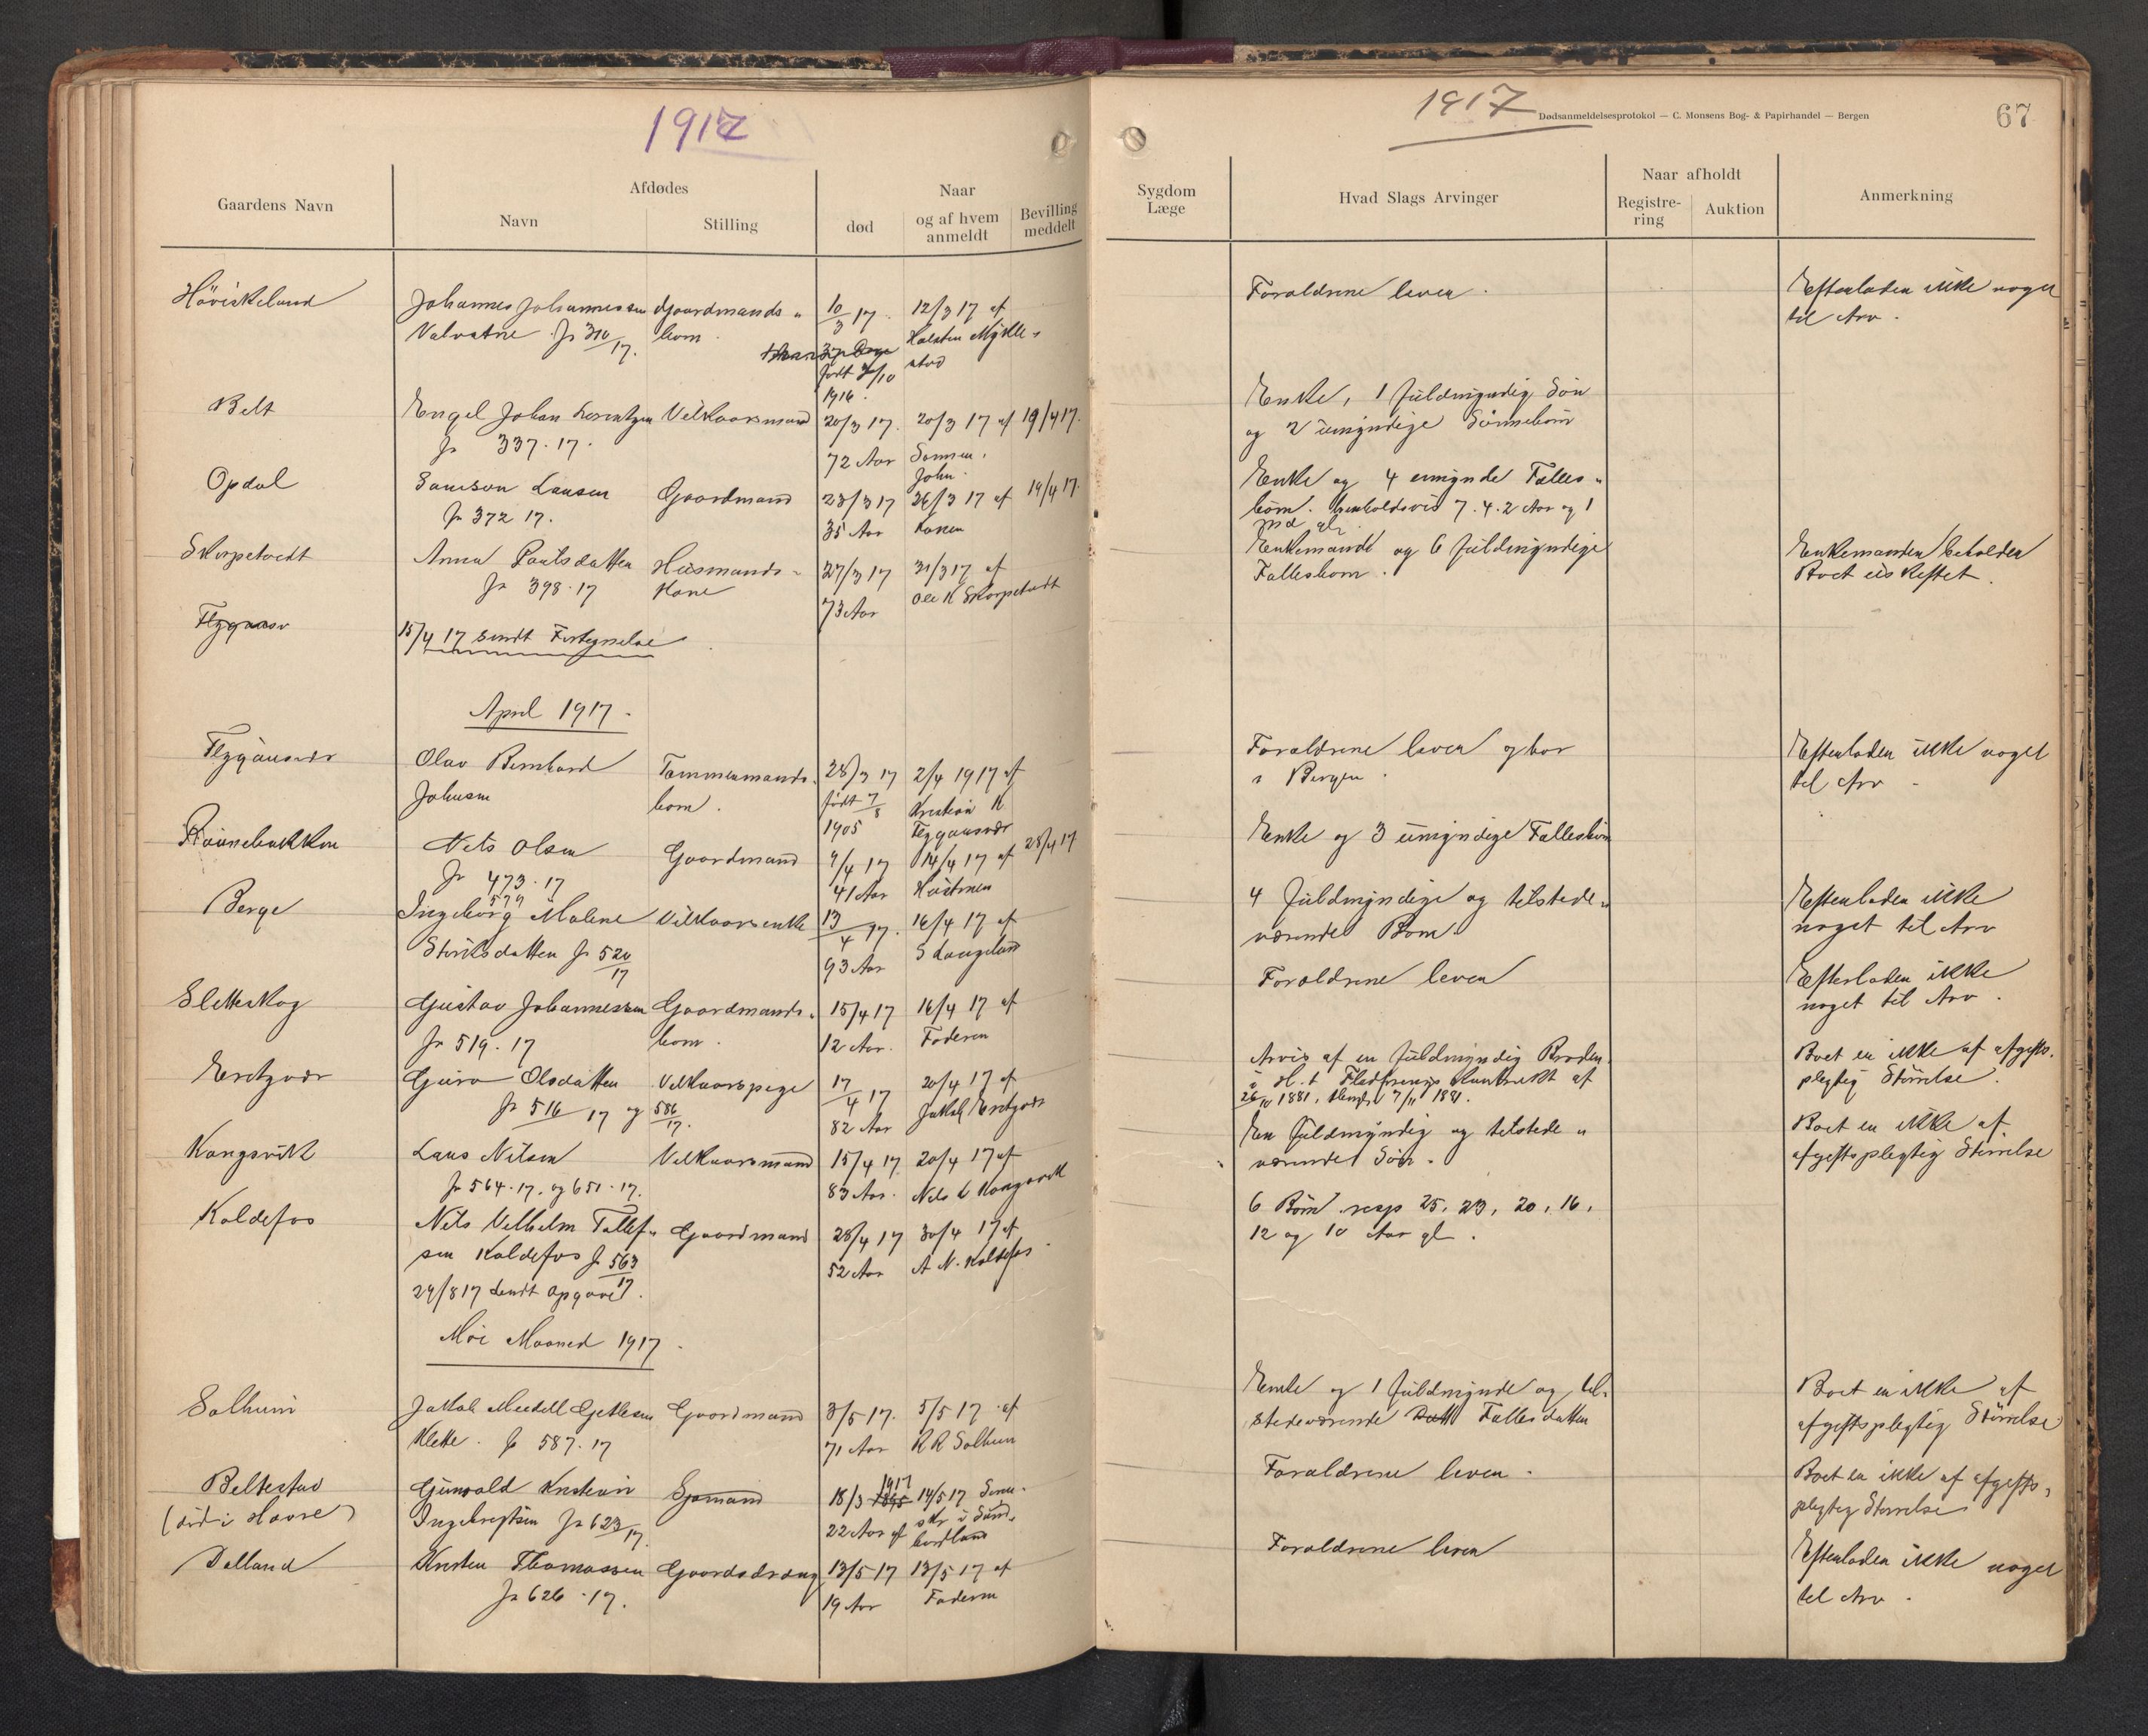 1917
1917
Dødsanmeldelsesprotokol — C. Monsens Bog- & Papirhandel — Bergen
67
Gaardens Navn
Afdødes
Navn
Stilling
Naar
død
og af hvem anmeldt
Bevilling meddelt
Sygdom
Læge
Hvad Slags Arvinger
Naar afholdt
Registre-ring
Auktion
Anmerkning
Høviskeland
Johannes Johannessen Gaardmands- 10/3 17. 12/3 17 af
Valvatne Jr 310/17. barn. Halsten Mykle-
født 7/10 stad
1916.
Forældrene lever.
Efterlader ikke noget
til Arv.
Belt
Engel Johan Lorentzen Velkaarsmand 20/3 17. 20/3 17 af 19/4 17.
Jr 337.17. 72 Aar Sønnen
John.
Enke, 1 fuldmyndig Søn
og 2 umyndige Sønnebørn
Opdal
Samson Larsen Gaardmand 23/3 17 26/3 17 af 14/4 17.
Jr 372 17. 35 Aar Konen
Enke og 4 umynde Fælles-
børn. henholdsvis 7.4.2 Aar og 1
md gl.
Skorpetvedt
Anna Poulsdatter Husmands- 27/3 17 31/3 17 af
Jr 398.17 Kone 73 Aar Ole K Skorpetvedt
Enkemand og 6 fuldmyndige
Fællesbørn.
Enkemanden beholder
Boet uskiftet.
15/4 17 sendt Fortegnelse
April 1917.
Flygansvær
Olav Bernhard Tømmermands- 28/3 17 2/4 1917 af
Johnsen barn. født 7/8 Kristian K
1905 Flygansvær
Forældrene lever og bor
i Bergen.
Efterlader ikke noget
til Arv.
Nils Olsen Gaardmand 9/4 17 14/4 17 af 28/4 17
Jr 473.17 41 Aar Hustruen
574
Enke og 3 umyndige Fællesbørn
Berge
Ingeborg Malene Velkaarsenke 13/4 17. 16/4 17 af
Størksdatter Jr 520/17 93 Aar S Langeland
4 fuldmyndige og tilstede-
værende Børn.
Efterlader ikke
noget til Arv
Sletteskog
Gustav Johannessen Gaardmands- 15/4 17 16/4 17 af
Jr 519.17 barn. 12 Aar. Faderen
Forældrene lever
Efterlader ikke
noget til Arv.
Eretzvær
Guro Olsdatter Velkaarspige 17/4 17 20/4 17 af
Jr 516 17 og 586/17. 82 Aar Jakob Eretzvær
Arves af en fuldmyndig Broder
i H. t. Kontrakt af
26/10 1881, 7/11 1881.
Boet er ikke af afgifts-
plegtig Størrelse.
Kongsvik
Lars Nilsen Velkaarsmand 15/4 17 20/4 17 af
Jr 564.17. og 651.17. 83 Aar. Nils L Kongsvik
En fuldmyndig og tilstede-
værende Søn.
Boet er ikke af
afgiftsplegtig Størrelse
Koldefos
Nils Vilhelm Tollef- Gaardmand 28/4 17 30/4 17 af
sen Koldefos Jr 563/17 52 Aar A N. Koldefos
24/8 17 sendt opgave.
6 Børn resp 25, 23, 20, 16,
12 og 10 Aar gl.
Mai Maaned 1917.
Solheim
Jakob Gjethesen Gaardmand 3/5 17. 5/5 17 af
Klette. Jr 587.17 71 Aar R R Solheim
Enke og 1 fuldmynde og til-
stedeværende Fællesdatter
Boet er ikke af
afgiftsplegtig Størrelse
Beltestad
Gunvald Kristian Sjømand 18/3 1917 14/5 17
(død i Havre)
Ingebrigtsen Jr 623/17. 22 Aar af skr i Sønd-
hordland
Forældrene lever.
Boet er ikke af afgifts-
plegtig Størrelse
Dalland
Kristen Thomassen Gaardsdræng 13/5 17 13/5 17 af
Jr 626.17. 19 Aar Faderen
Forældrene lever
Efterlader ikke noget
til Arv.